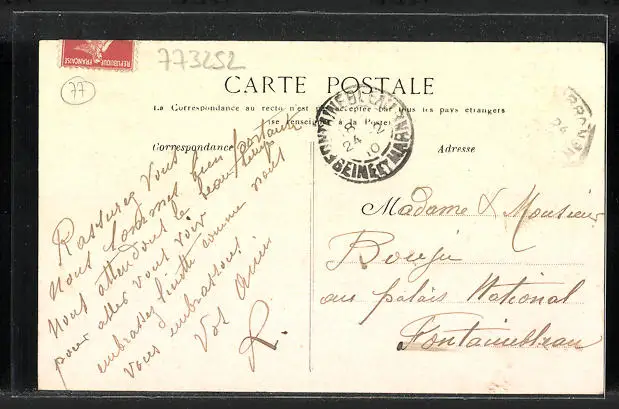 REPUBLIQUE FRANÇAISE
773252
77
CARTE POSTALE
La Correspondance au recto n'est pas acceptée par tous les pays étrangers
(se renseigner à la Poste)
Correspondance
Adresse
Rassurez vous
nous sommes bien portants
nous attendons le beau temps
pour aller vous voir
embrassez comme nous
vous embrassons
Vos Amis
R.
FONTAINEBLEAU
SEINE ET MARNE
8
24 12
10
Madame & Monsieur
Bougu
au palais National
Fontainebleau